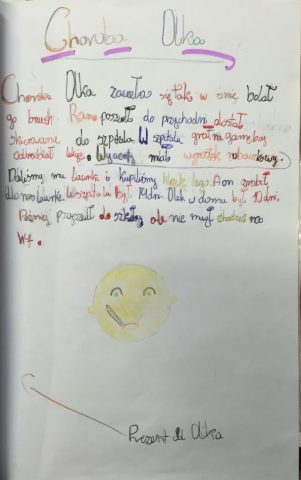 Choroba Olka
Choroba Olka zaczeła się tak w śnie bolał
go brzuch. Rano poszedł do przychodni dostał
skierowanie do szpitala. W szpitalu grał na gameboy
odrabiał lekcje. miał wyrostek robaczkowy.
Daliśmy mu laurki i kupiliśmy klocki lego. A on zrobił
dla nas laurkę. W szpitalu był 14 dni. Olek w domu był 10 dni.
Później przyszedł do szkoły ale nie mógł chodzić na
Wf.
Prezent dla Olka